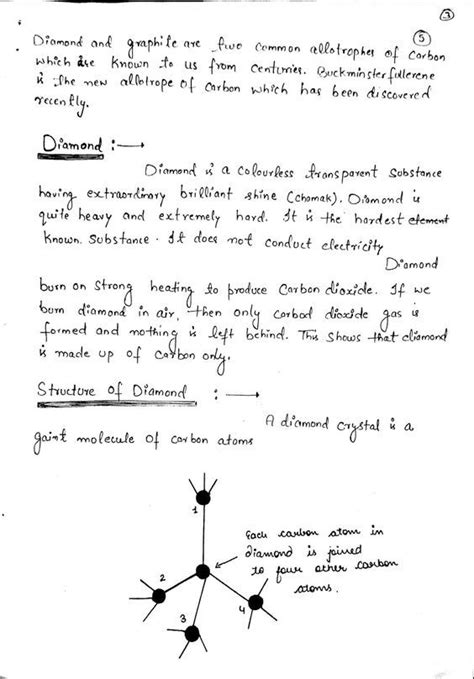 3
5
Diamond and graphite are two common allotrophes of Carbon
which are known to us from centuries. Buckminsterfullerene
is the new allotrope of Carbon which has been discovered
recently.
Diamond :→
Diamond is a colourless transparent Substance
having extraordinary brilliant shine (chamak). Diamond is
quite heavy and extremely hard. It is the hardest element
known. Substance. It does not conduct electricity
Diamond
burn on Strong heating to produce Carbon dioxide. If we
burn diamond in air, then only carbod dioxide gas is
formed and nothing is left behind. This shows that diamond
is made up of carbon only.
Structure of Diamond :→
A diamond crystal is a
gaint molecule of carbon atoms
1
Each carbon atom in
diamond is joined
to four other carbon
atoms.
2
3
4